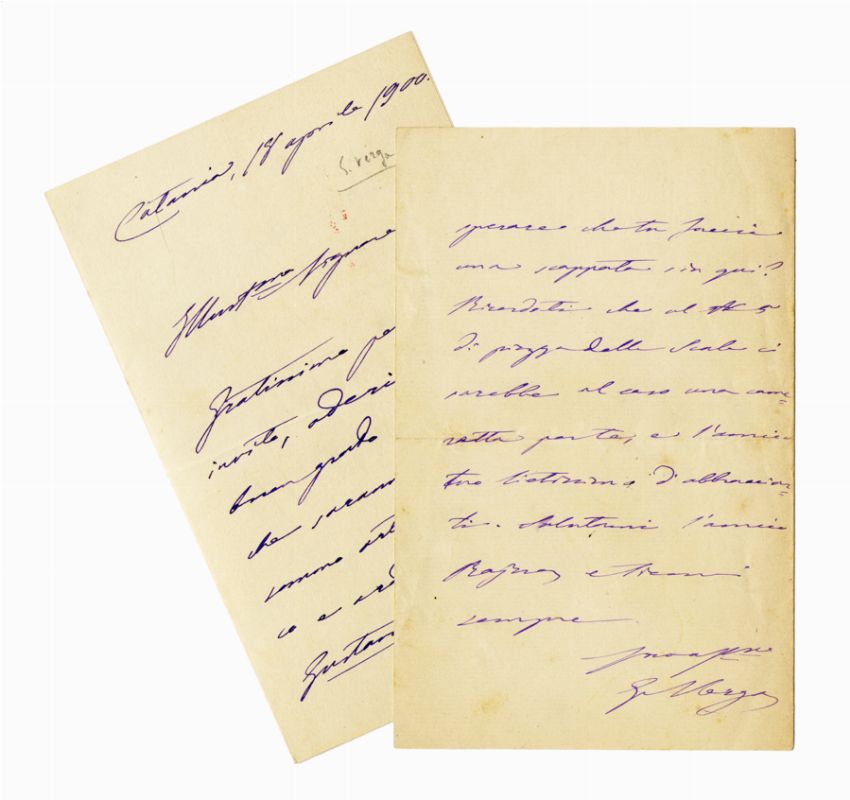 Catania, 18 aprile 1900.
G. Verga
Illustmo Signore
Gratissimo pe
invito, aderi
buon grado
che saran
sommo art
co e
Gustav
sperare che tu faccia
una scappata sin qui?
Ricordati che al N 5
di piazza della Scala ci
sarebbe al caso una came-
retta per te, e l'amico
tuo lietissimo d'abbracciar-
ti. Salutami l'amico
e tienmi
sempre
G. Verga